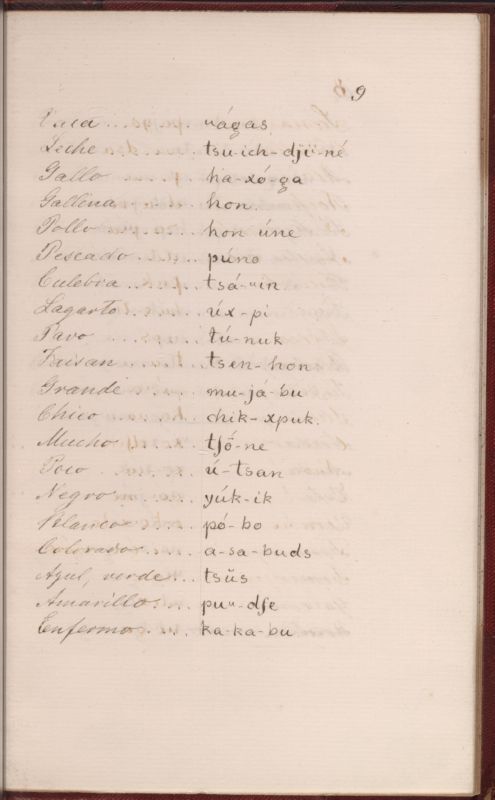 9
Vaca .... ⁿágas
Leche .... tsu-ich-djï-né
Gallo .... ha-xó-ga
Gallina .... hon.
Pollo .... hon úne
Pescado ... púno
Culebra .... tsá-ⁿin
Lagarto .... úx-pi
Pavo .... tú-nuk
Faisan .... tsen-hon
Grande .... mu-já-bu
Chico .... chik-xpuk.
Mucho .... tʃő-ne
Poco .... ú-tsan
Negro .... yúk-ik
Blanco .... pó-bo
Colorado .... a-sa-buds
Azul, verde ... tsŭs
Amarillo .... puⁿ-dʃe
Enfermo .... ka-ka-bu